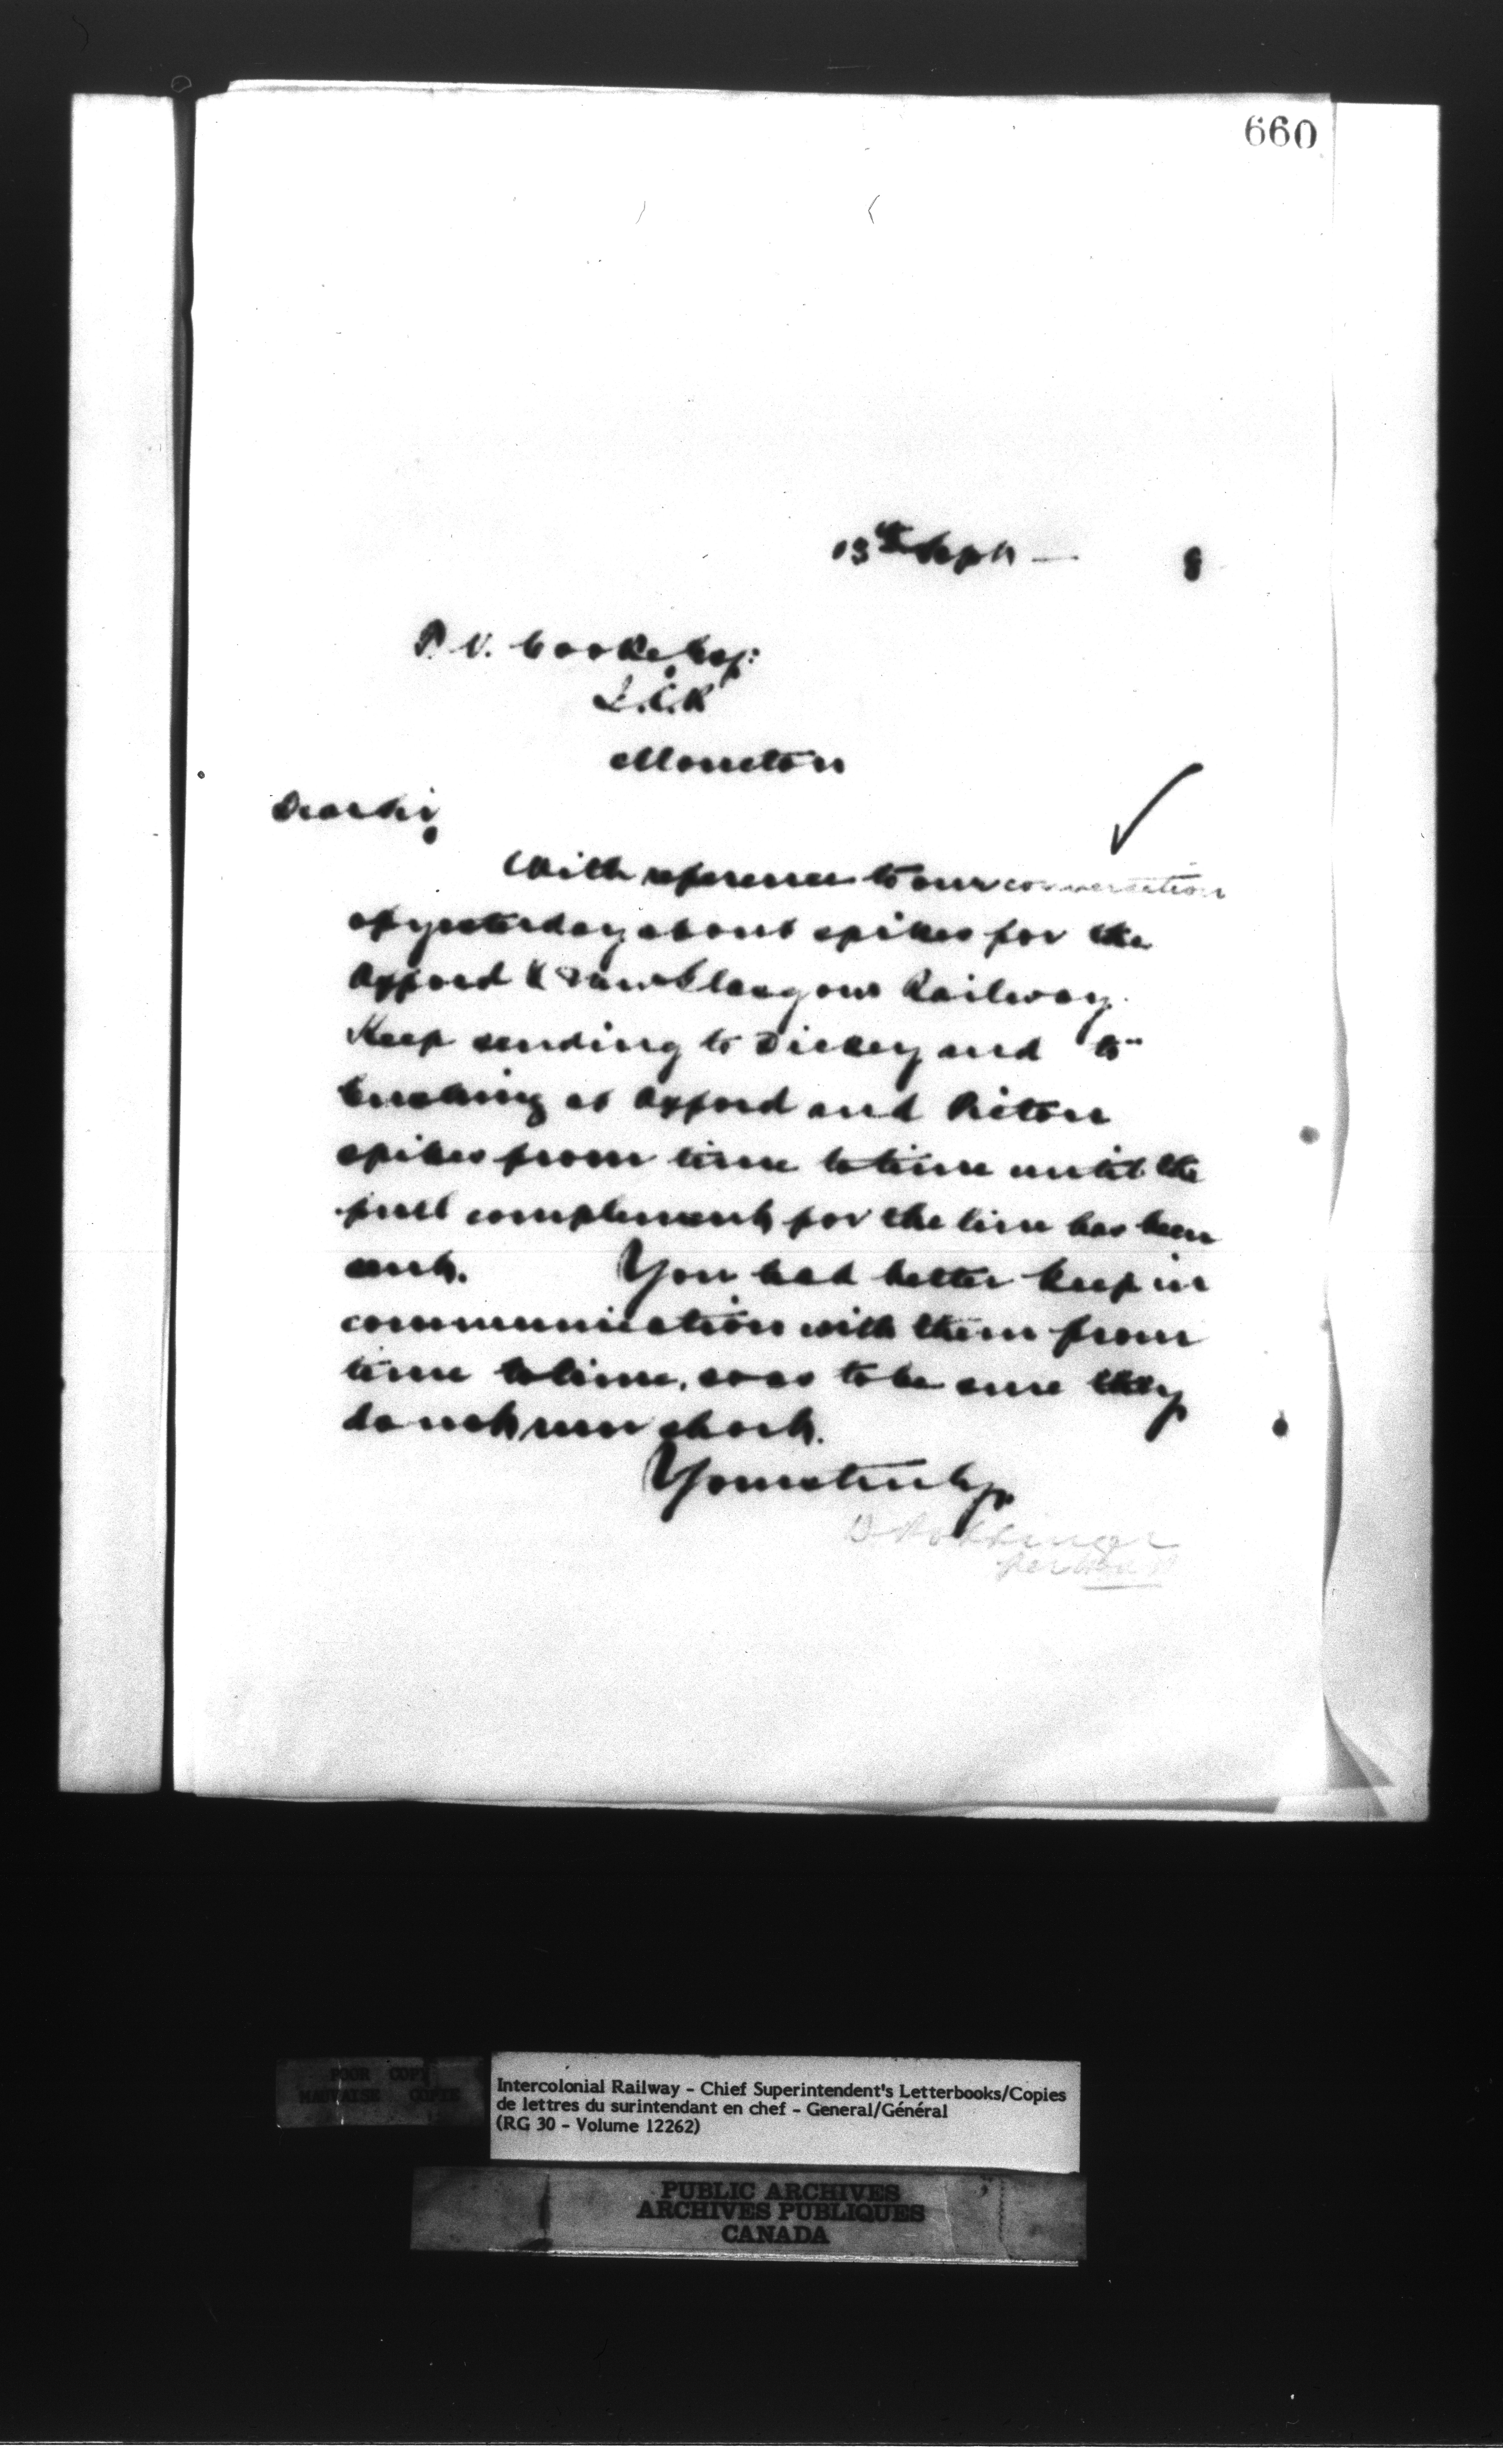 660
13th Sept — 8
P. V. Cooke, Esq:
I.C.R
Moncton
Dear Sir,
With reference to our conversation
of yesterday about spikes for the
Oxford & New Glasgow Railway.
Keep sending to Dickey and to
at Oxford and Pictou
spikes from time to time until the
full complement for the line has been
sent. You had better keep in
communication with them from
time to time, so as to be sure they
do not run short.
Yours truly,
D Pottinger
per
POOR COPY
MAUVAISE COPIE
Intercolonial Railway - Chief Superintendent's Letterbooks/Copies
de lettres du surintendant en chef - General/Général
(RG 30 - Volume 12262)
PUBLIC ARCHIVES
ARCHIVES PUBLIQUES
CANADA